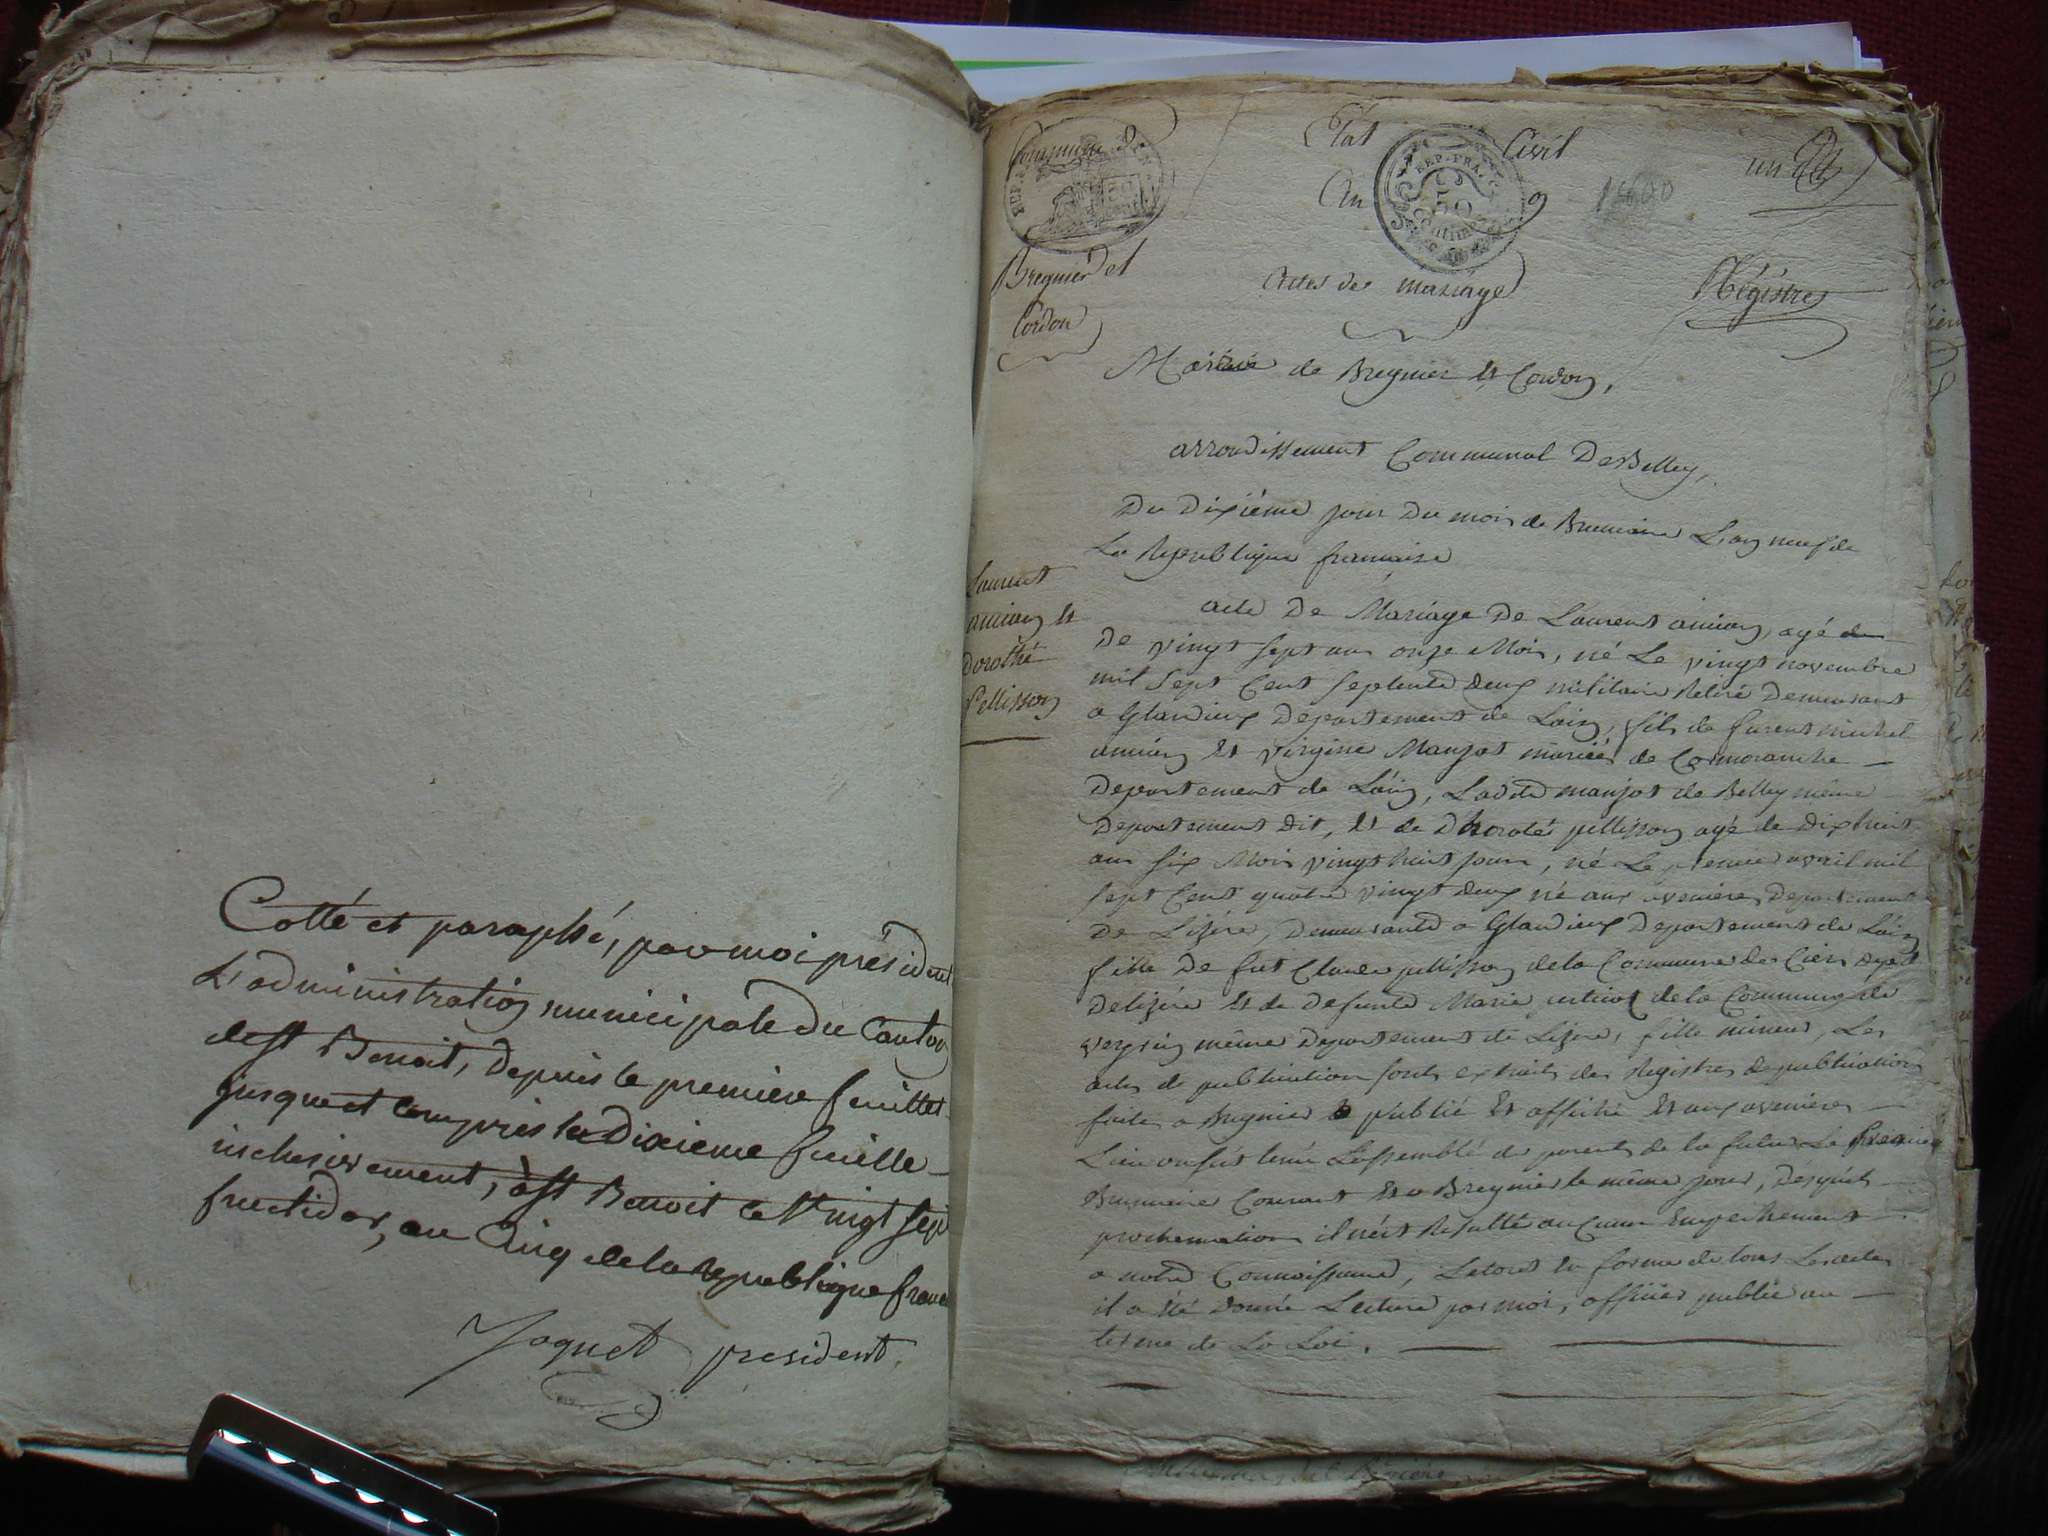 Cotté et paraphé, par moi président
L'administration municipale du Canton
de st Benoit, depuis le premiere feuillet
jusque et compris la Dixieme feuille
inclusivement, à st Benoit le Vingt sept
fructidor, an Cinq de la republique franc
Jaquet president
Commune de
Bregnier et
Cordon
Etat Civil
An 9
REP. FRA.
50
Centimes
un
Actes de mariage
Régistre
Mairie de Bregnier et Cordon,
arrondissement Communal De Belley,
Du Dixième jour Du mois de Brumaire L'an neuf de
La Republique francaise
Laurent
amien et
Dorothé
Pellisson
acte De Mariage De Laurent amien, agé de
De vingt sept ans onze Mois, né Le vingt novembre
mil sept Cent septente deux militaire Retiré Demeurant
a Glandieux Departement de Lain, fils de furent michel
amien et virgine Manjot mariés de Cormoranche
Departement de Lain, Ladite manjot de Belley même
Departement dit, et de Dhorotés pellisson agé de Dixhuit
ans six Mois vingt huit jours, né Le premier avril mil
sept Cent quatre vingt deux né aux avenieres Departement
De Lizére, Demeurante a Glandieux Departement de Lain
fille De fut Claude pellisson de la Commune de Ciers Depart
De lizére et de Defunte Marie de la Commune de
veyrin même Departement de Lizere, fille mineure, Les
actes de publication sont extraits des Registres de publication
faite a Bregnier publié et affiché et aux avenieres
Lieu ou fut tenue L'assemblé de parents de la future Le premier
Brumaire Courant et a Bregnier le même jour, Désquels
proclamation il n'est Resulté aucune Empechement
a notre Connoissance, Letout en forme de tous Les actes
il a été donnée Lecture par moi, officier public au
terme de La Loi.